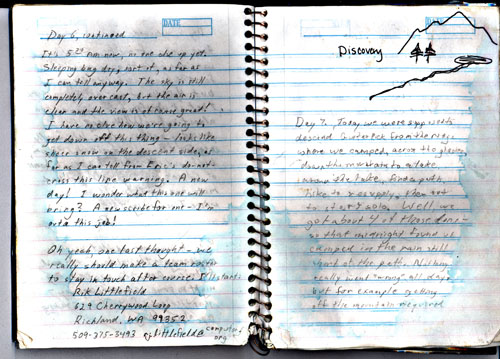 DATE
Day 6, continued
It's 5:25 am now, no one else up yet.
Sleeping bag dry, sort of, as far as
I can tell anyway. The sky is still
completely overcast, but the air is
clear and the view is of course great!
I have no idea how we're going to
get down off this thing - looks like
sheer snow on the descent side, as
far as I can tell from Eric's do-not-
cross this line warning. A new
day! I wonder what this one will
bring? A new scribe for one - I'm
outa this job!
Oh yeah, one last thought - we
really should make a team roster
to stay in touch after course. I'll start:
Rik Littlefield
629 Cherrywood Loop
Richland, WA 99352
509-375-3493 rj.littlefield@computer.org
DATE
Discovery
Day 7. Today we were supposed to
descend from the ridge,
where we camped, across the glacier,
down the mountain to a lake,
find a path,
hike to resupply, then
to start solo. Well we
got about 4 of those done
so that midnight found us
camped in the rain still
short of the path. Nothing
really went "wrong" all day
but for example getting
off the mountain required